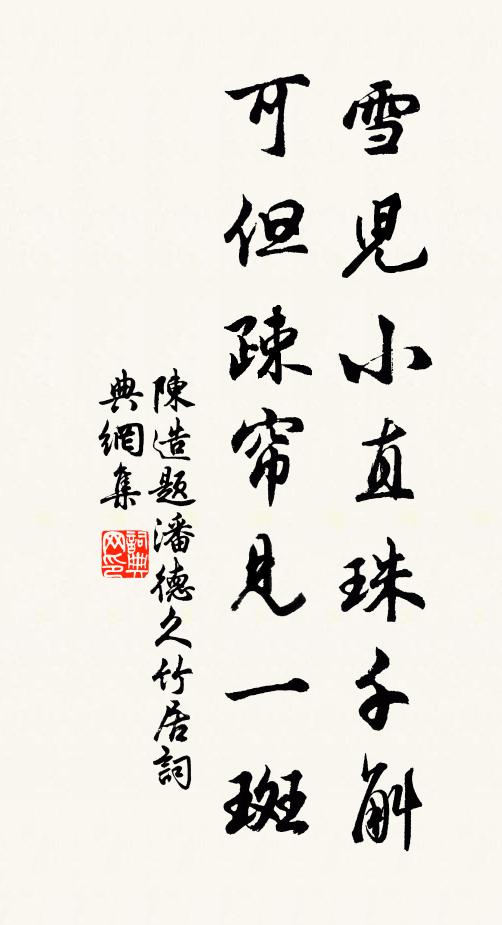 雪児小直珠千斛
可但疎帘見一斑
陳造題潘德久竹居詞
典網集
詞典网印